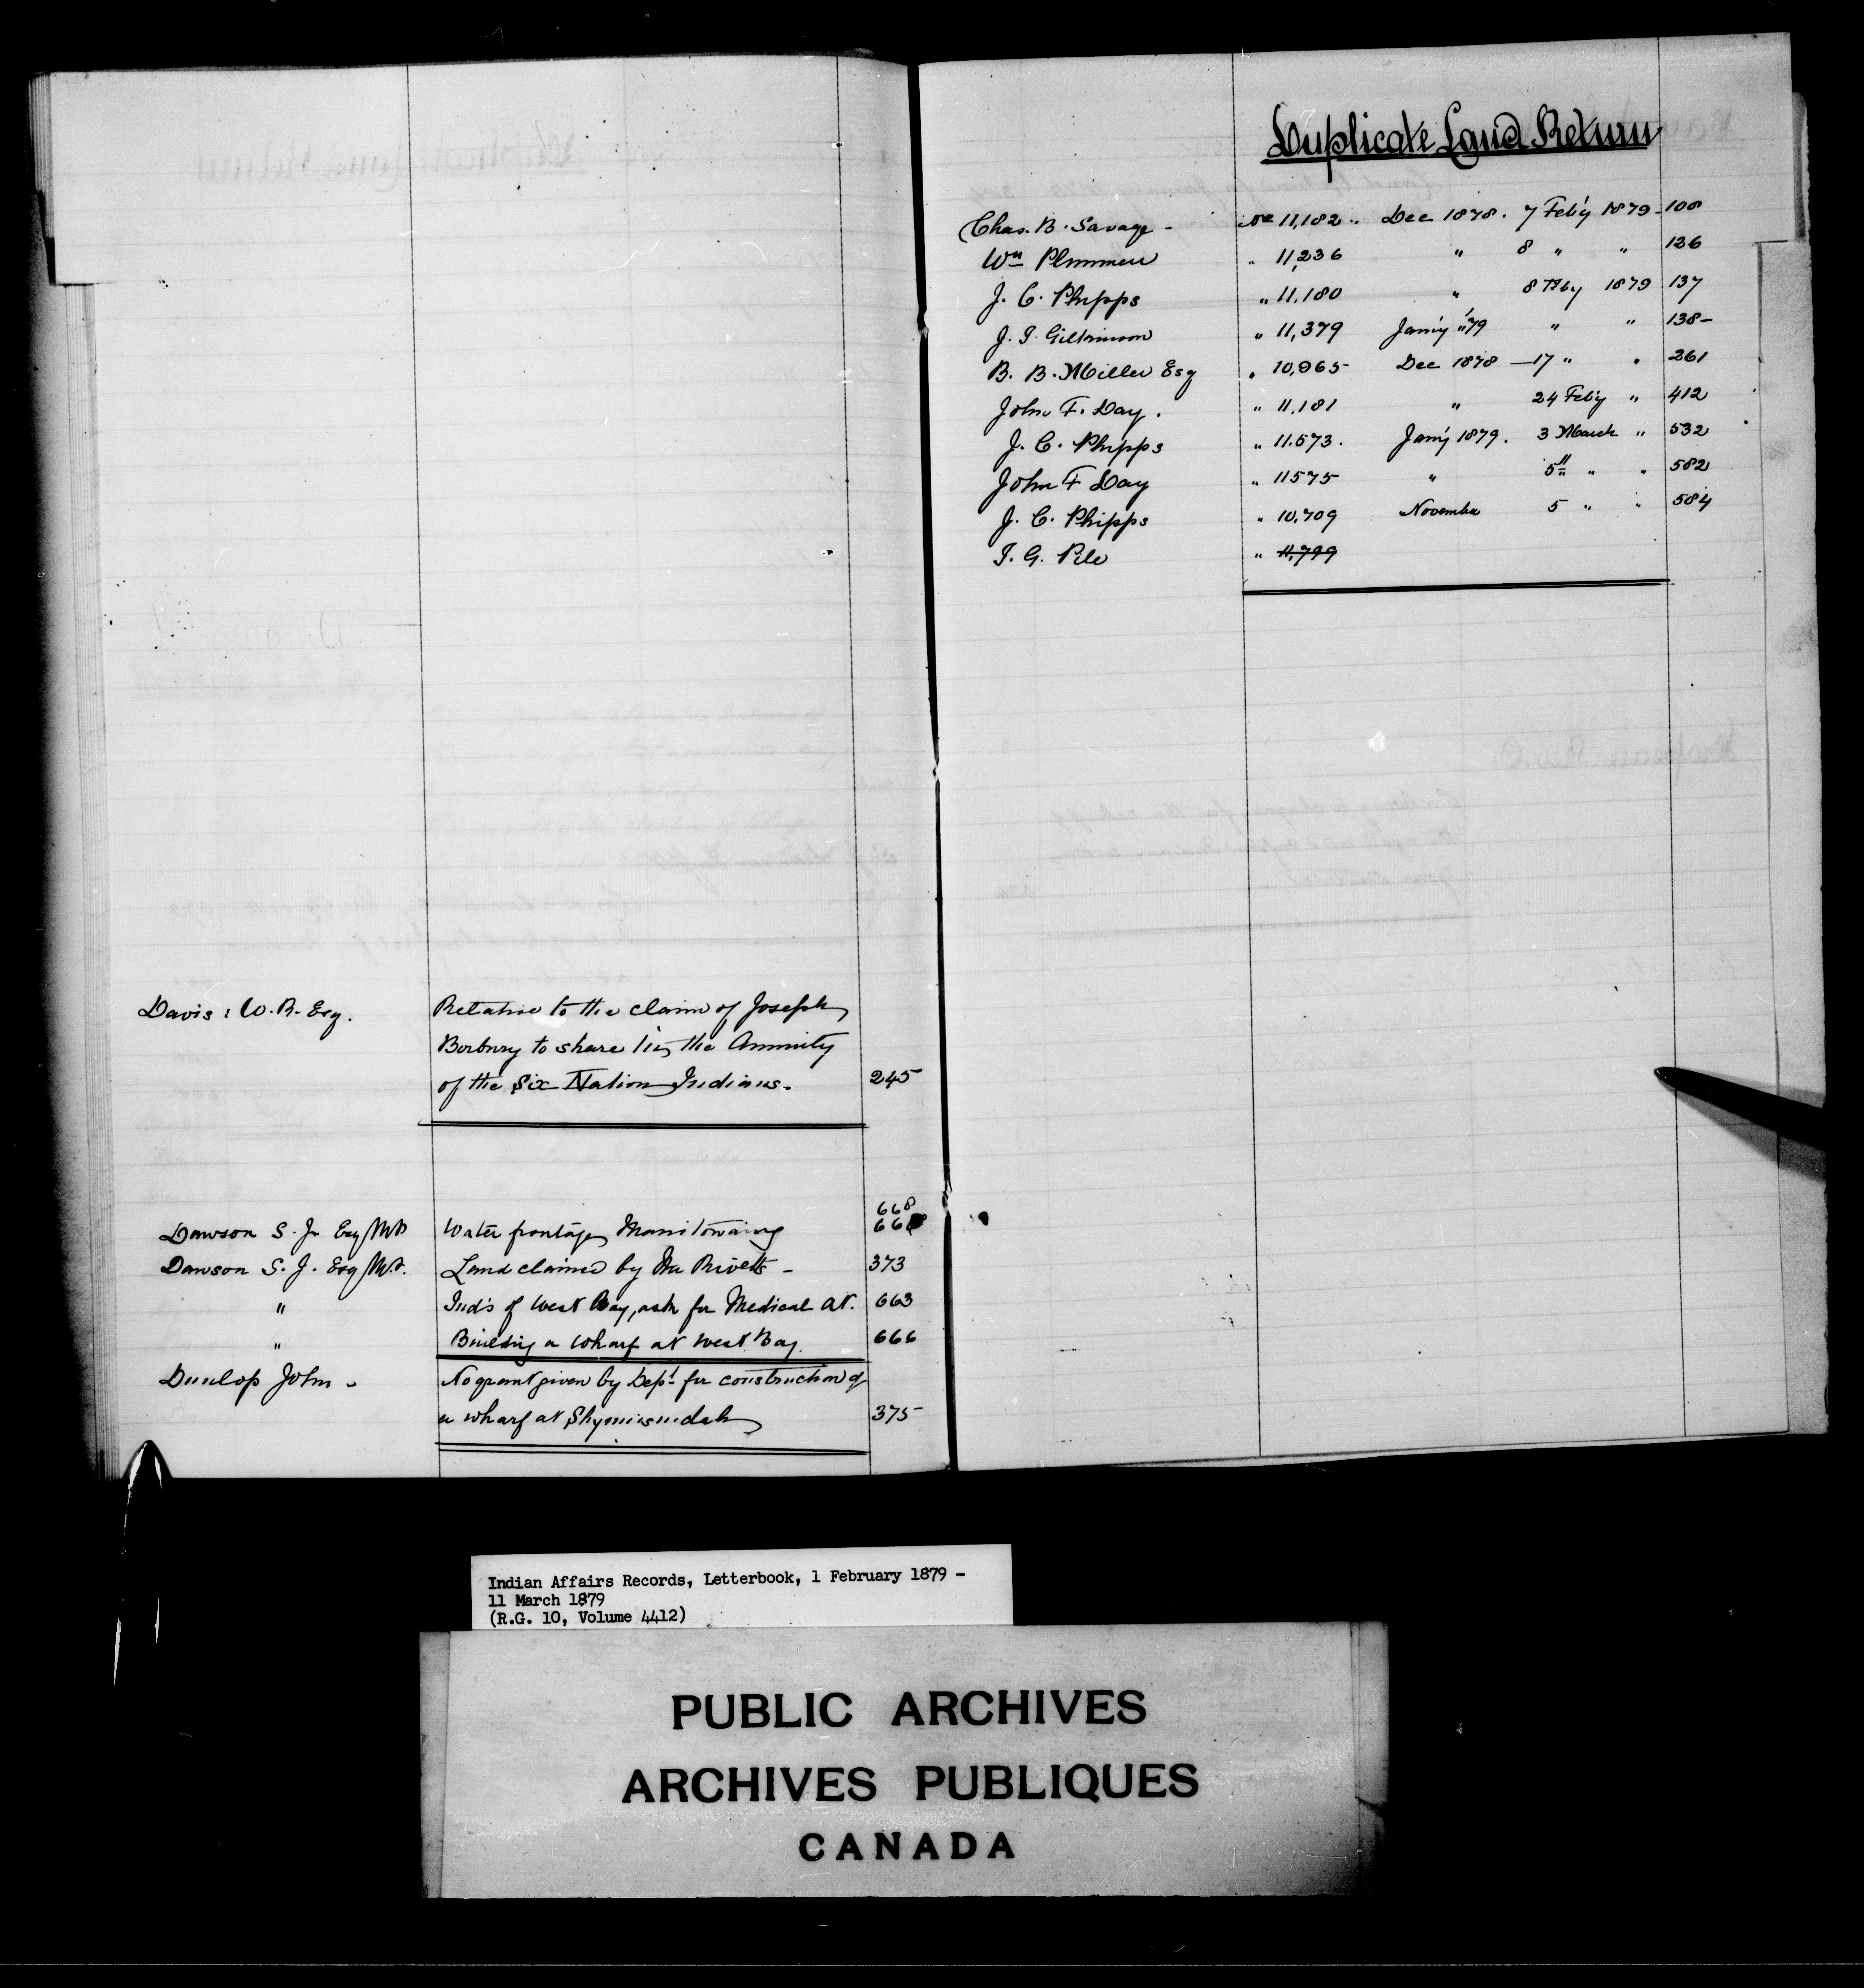 Davis, W. R. Esq. Relative to the claim of Joseph
Borbury to share in the Annuity
of the Six Nation Indians. 245
668
Dawson S. J. Esq M.P. Water frontage Manitowaning 668
Dawson S. J. Esq M.P. Land claimed by Mr Rivetts - 373
" Ind's of West Bay, ask for Medical At. 663
" Building a Wharf at West Bay. 666
Dunlop John - No grant given by Dept for construction of
a wharf at 375
Duplicate Land Return
Chas. B. Savage - No 11,182 .. Dec 1878. 7 Feb'y 1879 - 108
Wm Plummer " 11,236 " 8 " " 126
J. C. Phipps " 11.180 " 8 Feby 1879 137
J. T. Gilkinson " 11,379 Jan'y '79 " " 138 -
B. B. Miller Esq " 10,965 - Dec 1878 - 17 " " 261
John F. Day. " 11,181 " 24 Feb'y " 412
J. C. Phipps " 11.573. Jan'y 1879. 3 March " 532
John F Day " 11575 " 5th " " 582
J. C. Phipps " 10,709 November 5 " " 584
T. G. Pile " 11,799
Indian Affairs Records, Letterbook, 1 February 1879 -
11 March 1879
(R.G. 10, Volume 4412)
PUBLIC ARCHIVES
ARCHIVES PUBLIQUES
CANADA